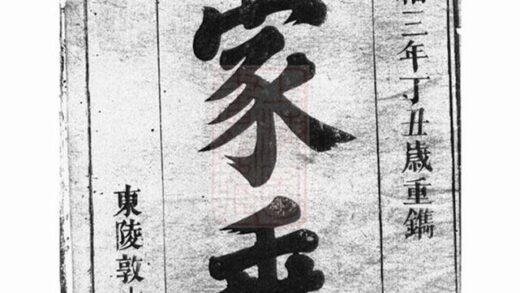 三年丁丑歲重鐫
家
東陵敦